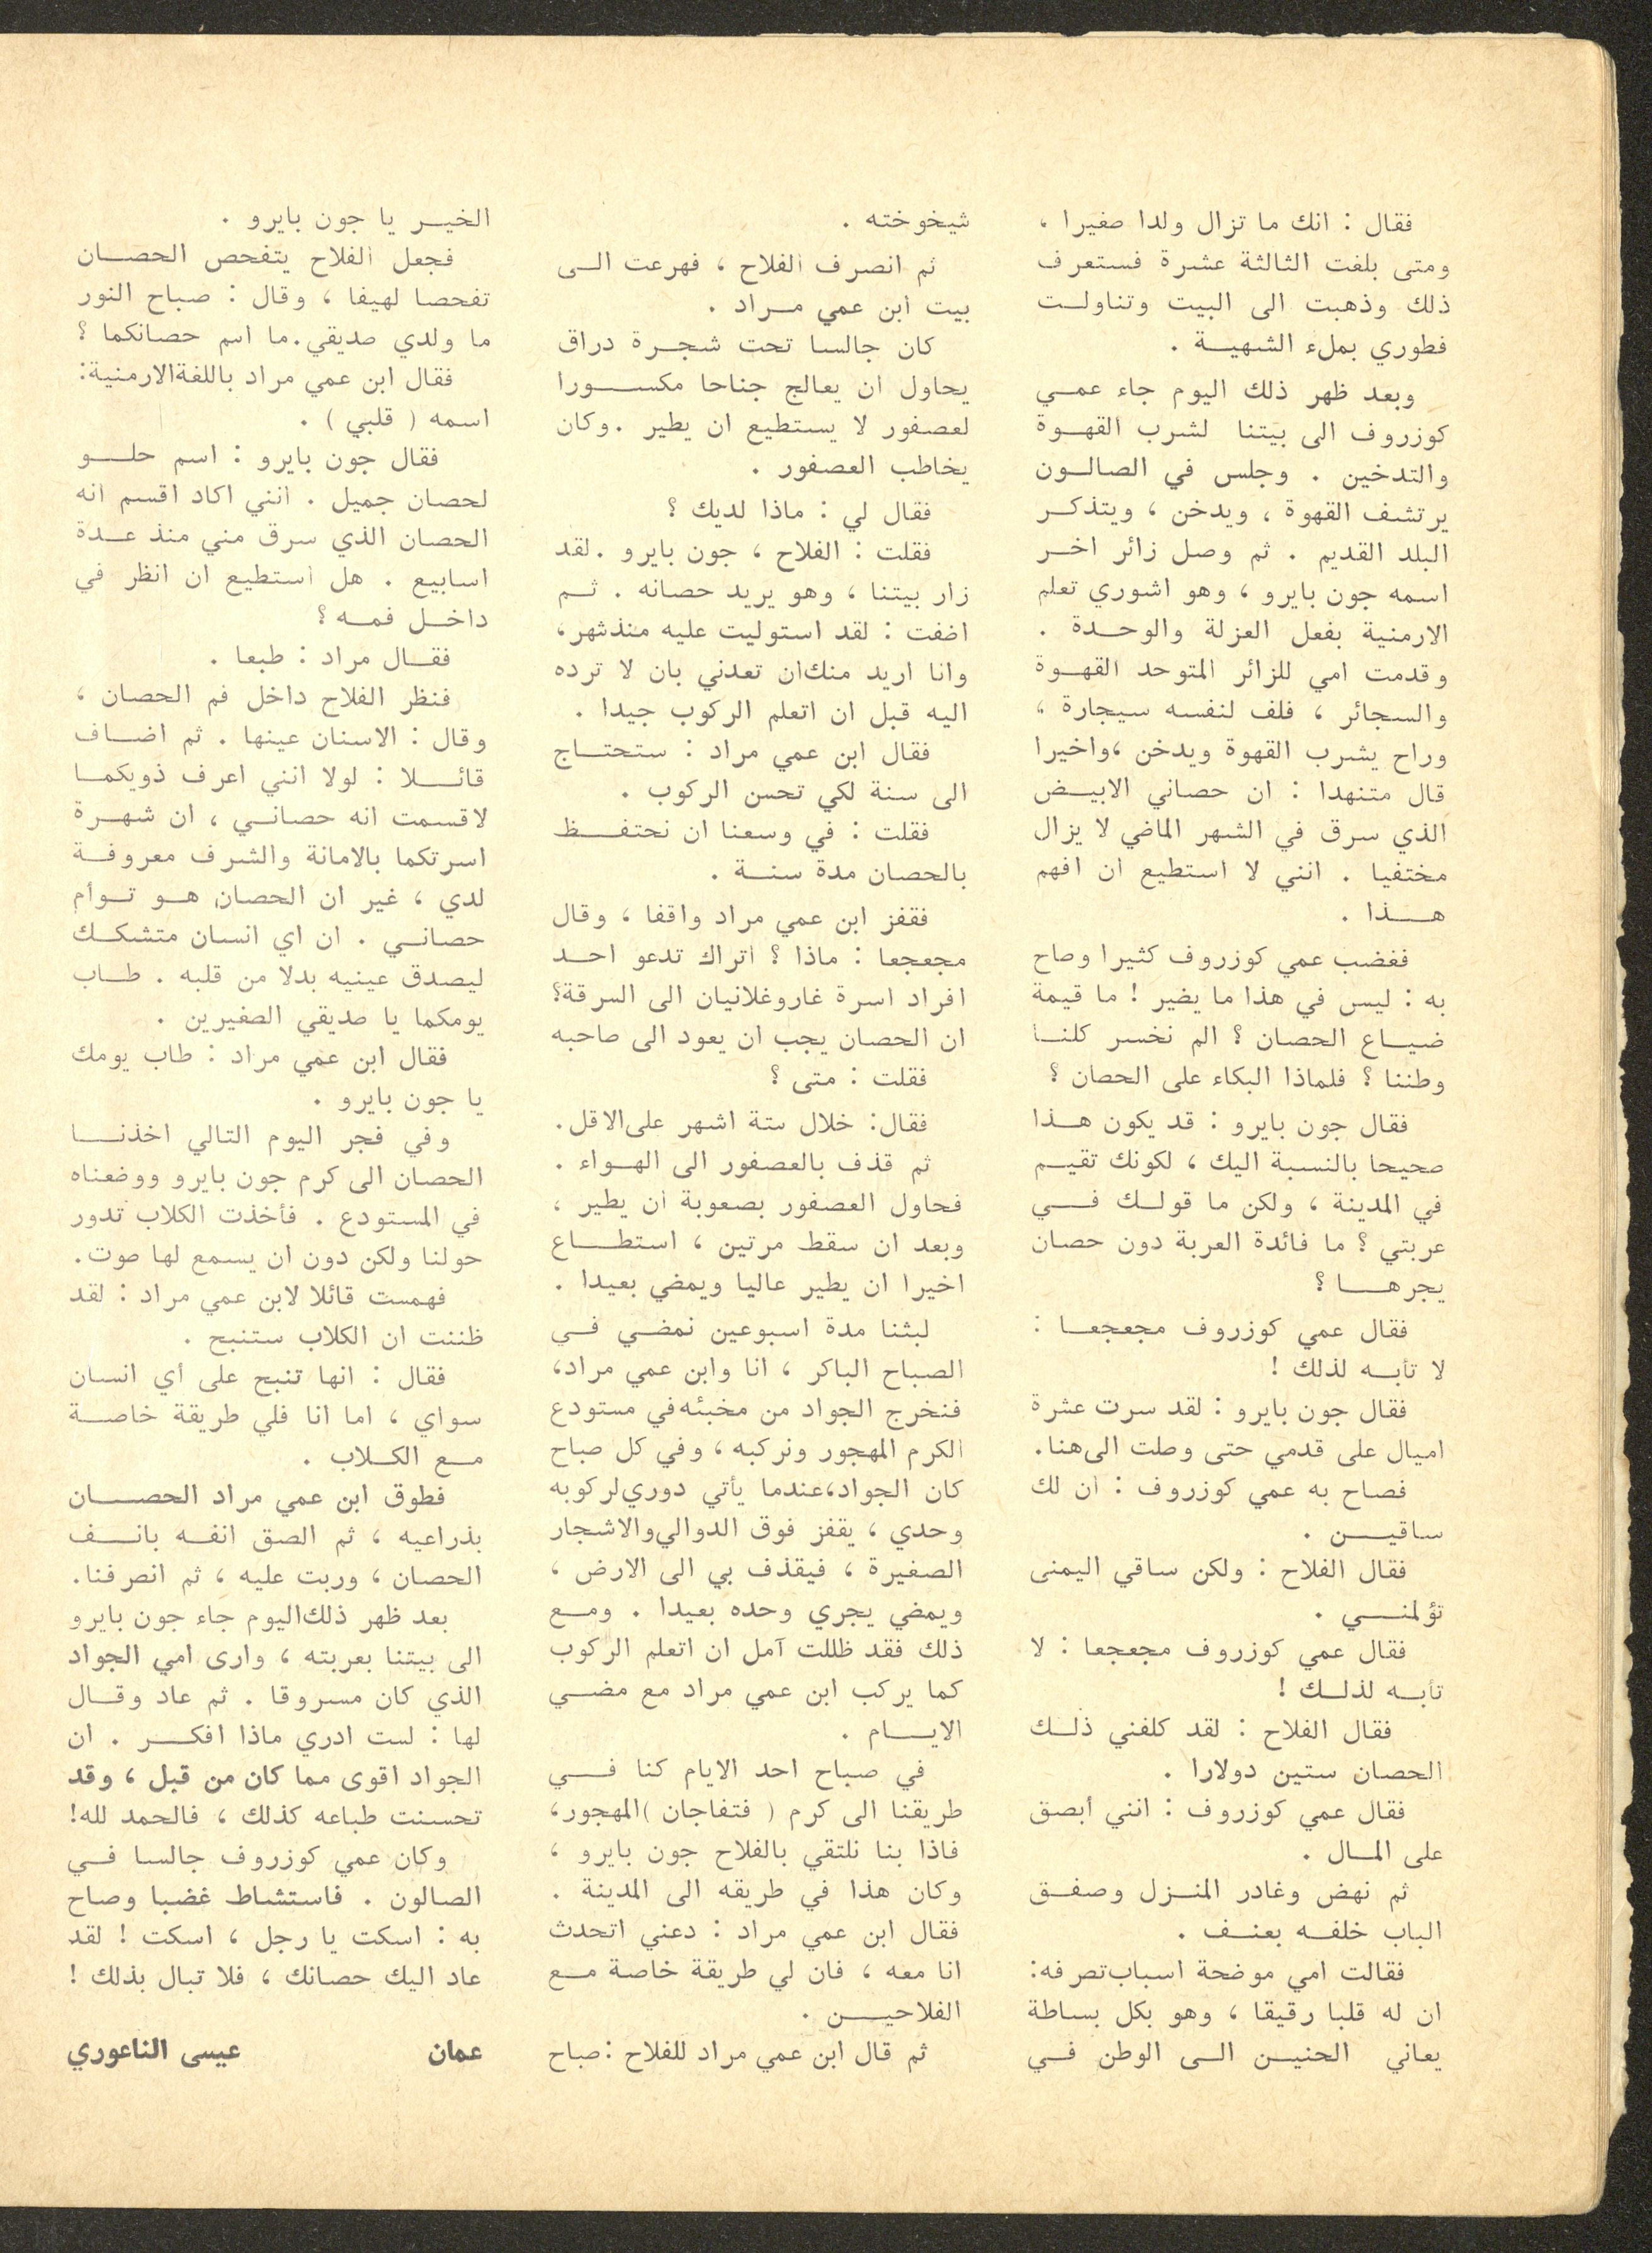 فقال : انك ما تزال ولدا صغيرا ،
ومتى بلغت الثالثة عشرة فستعرف
ذلك وذهبت الى البيت وتناولت
فطوري بملء الشهية .
وبعد ظهر ذلك اليوم جاء عمي
كوزروف الى بيتنا لشرب القهوة
والتدخين . وجلس في الصالون
يرتشف القهوة ، ويدخن ، ويتذكر
البلد القديم . ثم وصل زائر اخر
اسمه جون بايرو ، وهو اشوري تعلم
الارمنية بفعل العزلة والوحدة .
وقدمت امي للزائر المتوحد القهوة
والسجائر ، فلف لنفسه سيجارة ،
وراح يشرب القهوة ويدخن ،واخيرا
قال متنهدا : ان حصاني الابيض
الذي سرق في الشهر الماضي لا يزال
مختفيا . انني لا استطيع ان افهم
هذا .
فغضب عمي كوزروف كثيرا وصاح
به : ليس في هذا ما يضير ! ما قيمة
ضياع الحصان ؟ الم نخسر كلنا
وطننا ؟ فلماذا البكاء على الحصان ؟
فقال جون بايرو : قد يكون هذا
صحيحا بالنسبة اليك ، لكونك تقيم
في المدينة ، ولكن ما قولك في
عربتي ؟ ما فائدة العربة دون حصان
يجرها ؟
فقال عمي كوزروف مجعجعا :
لا تأبه لذلك !
فقال جون بايرو : لقد سرت عشرة
اميال على قدمي حتى وصلت الى هنا.
فصاح به عمي كوزروف : ان لك
ساقين .
فقال الفلاح : ولكن ساقي اليمنى
تؤلمني .
فقال عمي كوزروف مجعجعا : لا
تأبه لذلك !
فقال الفلاح : لقد كلفني ذلك
الحصان ستين دولارا .
فقال عمي كوزروف : انني أبصق
على المال .
ثم نهض وغادر المنزل وصفق
الباب خلفه بعنف .
فقالت امي موضحة اسباب تصرفه:
ان له قلبا رقيقا ، وهو بكل بساطة
يعاني الحنين الى الوطن في
شيخوخته .
ثم انصرف الفلاح ، فهرعت الى
بيت ابن عمي مراد .
كان جالسا تحت شجرة دراق
يحاول ان يعالج جناحا مكسورا
لعصفور لا يستطيع ان يطير .وكان
يخاطب العصفور .
فقال لي : ماذا لديك ؟
فقلت : الفلاح ، جون بايرو .لقد
زار بيتنا ، وهو يريد حصانه . ثم
اضفت : لقد استوليت عليه منذ شهر،
وانا اريد منك ان تعدني بان لا ترده
اليه قبل ان اتعلم الركوب جيدا .
فقال ابن عمي مراد : ستحتاج
الى سنة لكي تحسن الركوب .
فقلت : في وسعنا ان نحتفظ
بالحصان مدة سنة .
فقفز ابن عمي مراد واقفا ، وقال
مجعجعا : ماذا ؟ اتراك تدعو احد
افراد اسرة غاروغلانيان الى السرقة؟
ان الحصان يجب ان يعود الى صاحبه
فقلت : متى ؟
فقال: خلال ستة اشهر على الاقل.
ثم قذف بالعصفور الى الهواء .
فحاول العصفور بصعوبة ان يطير ،
وبعد ان سقط مرتين ، استطاع
اخيرا ان يطير عاليا ويمضي بعيدا .
لبثنا مدة اسبوعين نمضي في
الصباح الباكر ، انا وابن عمي مراد،
فنخرج الجواد من مخبئه في مستودع
الكرم المهجور ونركبه ، وفي كل صباح
كان الجواد،عندما يأتي دوري لركوبه
وحدي ، يقفز فوق الدوالي والاشجار
الصغيرة ، فيقذف بي الى الارض ،
ويمضي يجري وحده بعيدا . ومع
ذلك فقد ظللت آمل ان اتعلم الركوب
كما يركب ابن عمي مراد مع مضي
الايام .
في صباح احد الايام كنا في
طريقنا الى كرم ( فتفاجان )المهجور،
فاذا بنا نلتقي بالفلاح جون بايرو ،
وكان هذا في طريقه الى المدينة .
فقال ابن عمي مراد : دعني اتحدث
انا معه ، فان لي طريقة خاصة مع
الفلاحين .
ثم قال ابن عمي مراد للفلاح :صباح
الخير يا جون بايرو .
فجعل الفلاح يتفحص الحصان
تفحصا لهيفا ، وقال : صباح النور
ما ولدي صديقي.ما اسم حصانكما ؟
فقال ابن عمي مراد باللغة الارمنية:
اسمه ( قلبي ) .
فقال جون بايرو : اسم حلو
لحصان جميل . انني اكاد اقسم انه
الحصان الذي سرق مني منذ عدة
اسابيع . هل استطيع ان انظر في
داخل فمه ؟
فقال مراد : طبعا .
فنظر الفلاح داخل فم الحصان ،
وقال : الاسنان عينها . ثم اضاف
قائلا : لولا انني اعرف ذويكما
لاقسمت انه حصاني ، ان شهرة
اسرتكما بالامانة والشرف معروفة
لدي ، غير ان الحصان هو توأم
حصاني . ان اي انسان متشكك
ليصدق عينيه بدلا من قلبه . طاب
يومكما يا صديقي الصغيرين .
فقال ابن عمي مراد : طاب يومك
يا جون بايرو .
وفي فجر اليوم التالي اخذنا
الحصان الى كرم جون بايرو ووضعناه
في المستودع . فأخذت الكلاب تدور
حولنا ولكن دون ان يسمع لها صوت.
فهمست قائلا لابن عمي مراد : لقد
ظننت ان الكلاب ستنبح .
فقال : انها تنبح على أي انسان
سواي ، اما انا فلي طريقة خاصة
مع الكلاب .
فطوق ابن عمي مراد الحصان
بذراعيه ، ثم الصق انفه بانف
الحصان ، وربت عليه ، ثم انصرفنا.
بعد ظهر ذلك اليوم جاء جون بايرو
الى بيتنا بعربته ، وارى امي الجواد
الذي كان مسروقا . ثم عاد وقال
لها : لست ادري ماذا افكر . ان
الجواد اقوى مما كان من قبل ، وقد
تحسنت طباعه كذلك ، فالحمد لله!
وكان عمي كوزروف جالسا في
الصالون . فاستشاط غضبا وصاح
به : اسكت يا رجل ، اسكت ! لقد
عاد اليك حصانك ، فلا تبال بذلك !
عمان عيسى الناعوري